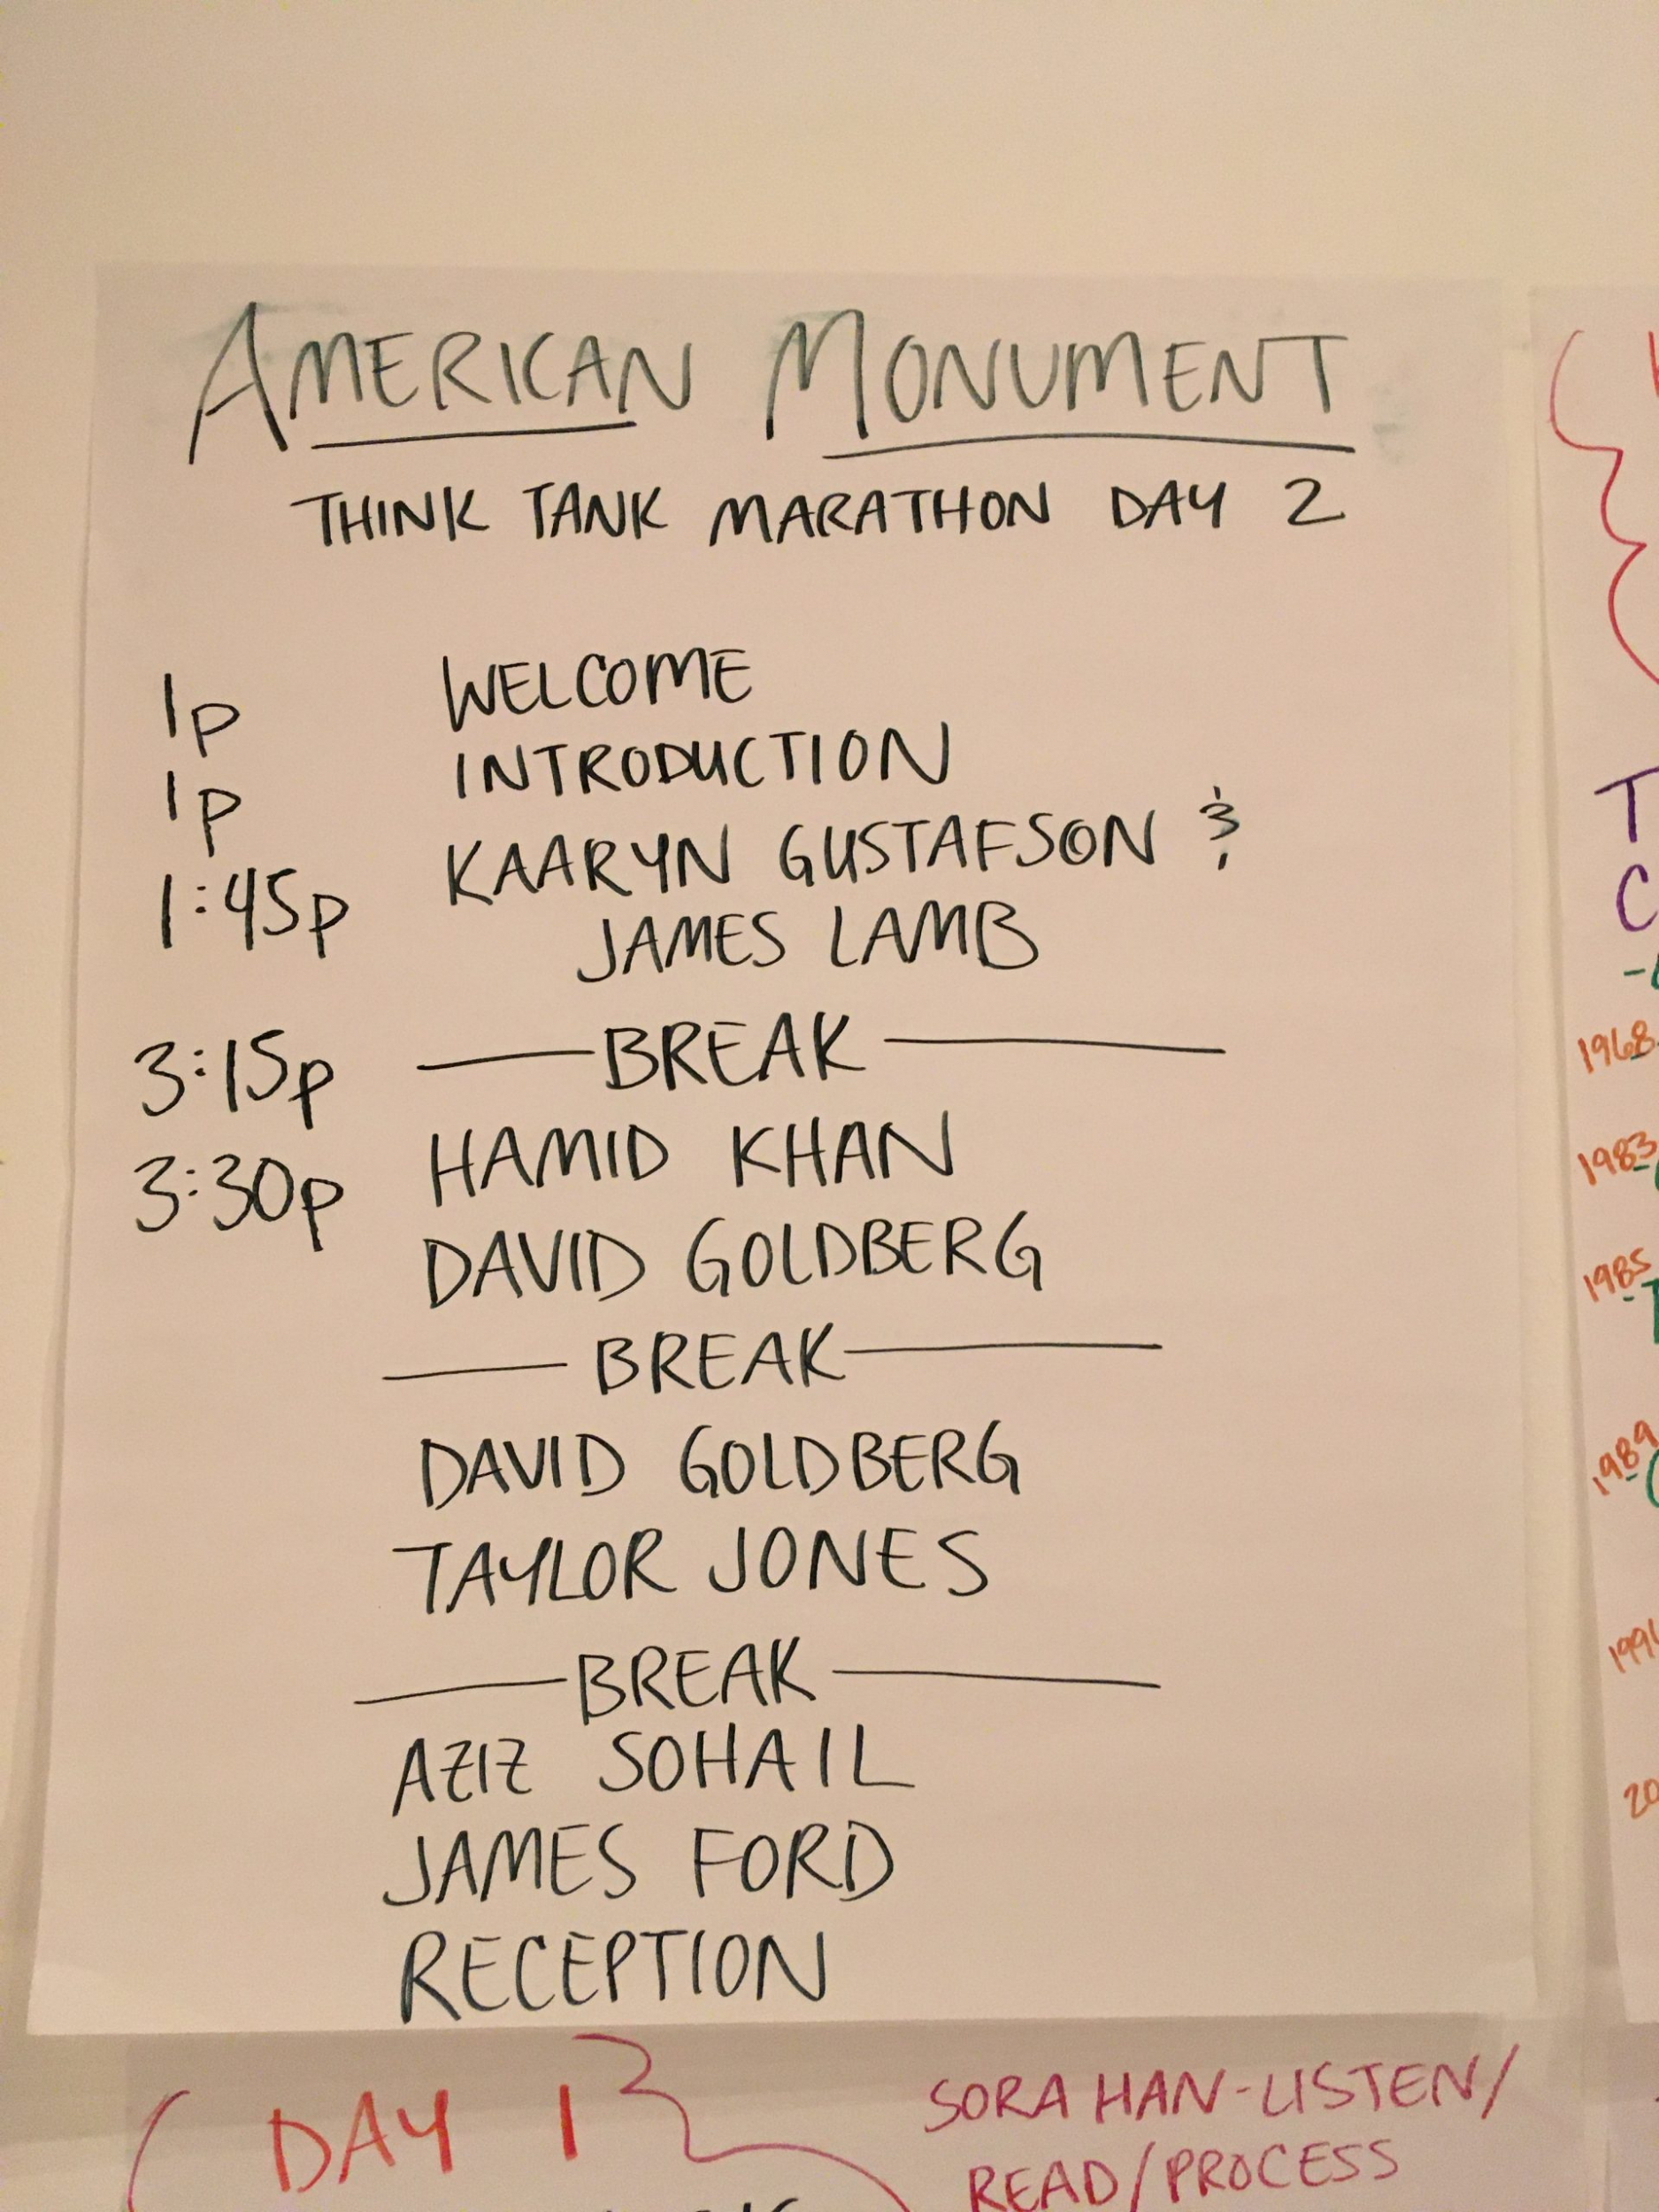 AMERICAN MONUMENT
THINK TANK MARATHON DAY 2
1p WELCOME
1p INTRODUCTION
1:45p KAARYN GUSTAFSON &
JAMES LAMB
3:15p — BREAK —
3:30p HAMID KHAN
DAVID GOLDBERG
— BREAK —
DAVID GOLDBERG
TAYLOR JONES
— BREAK —
AZIZ SOHAIL
JAMES FORD
RECEPTION
DAY 1
SORA HAN-LISTEN/
READ/PROCESS
1968
1983
1985
1989